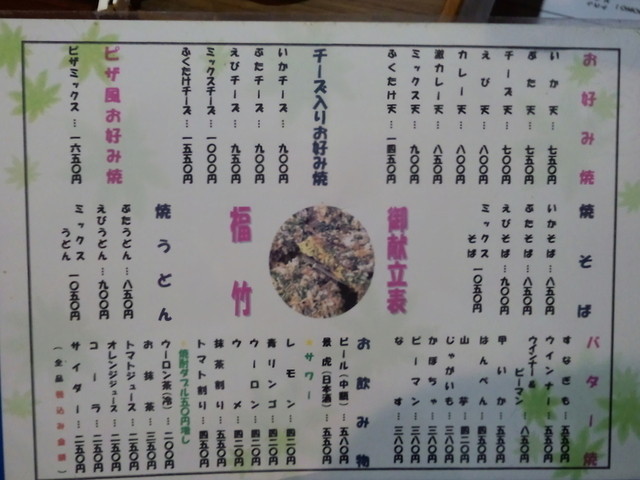 お好み焼
いか天…七五〇円
ぶた天…七五〇円
チーズ天…七〇〇円
えび天…八〇〇円
カレー天…八〇〇円
激カレー天…八五〇円
ミックス天…九〇〇円
ふくたけ天…一四五〇円
チーズ入りお好み焼
いかチーズ…九〇〇円
ぶたチーズ…九〇〇円
えびチーズ…九五〇円
ミックスチーズ…一〇〇〇円
ふくたけチーズ…一五五〇円
ピザ風お好み焼
ピザミックス…一六五〇円
焼そば
いかそば…八五〇円
ぶたそば…八五〇円
えびそば…九〇〇円
ミックスそば…一〇五〇円
御献立表
福竹
焼うどん
ぶたうどん…八五〇円
えびうどん…九〇〇円
ミックスうどん…一〇五〇円
バター焼
すなぎも…五五〇円
ウインナー…五五〇円
ウインナー&ピーマン…八五〇円
甲いか…五五〇円
はんぺん…四五〇円
山芋…四二〇円
じゃがいも…三八〇円
かぼちゃ…三八〇円
ピーマン…三八〇円
なす…三八〇円
お飲み物
ビール(中瓶)…五八〇円
景虎(日本酒)…五五〇円
サワー
レモン…四二〇円
青リンゴ…四二〇円
ウーロン…四二〇円
ウメ…四二〇円
抹茶割り…四五〇円
トマト割り…四五〇円
焼酎ダブル五〇円増し
ウーロン茶(冷)…二〇〇円
お抹茶…三五〇円
トマトジュース…二五〇円
オレンジジュース…二五〇円
コーラ…二五〇円
サイダー…二五〇円
(全品税込み金額)